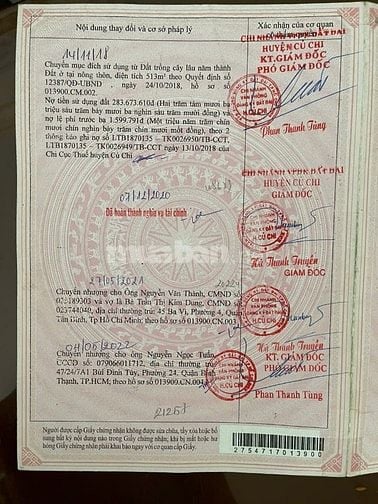 Nội dung thay đổi và cơ sở pháp lý
Xác nhận của cơ quan
có thẩm quyền
14/11/18
Chuyển mục đích sử dụng từ Đất trồng cây lâu năm thành
Đất ở tại nông thôn, diện tích 513m² theo Quyết định số
12387/QĐ-UBND ngày 24/10/2018, hồ sơ số
013900.CM.002.
Nợ tiền sử dụng đất 283.673.610đ (Hai trăm tám mươi ba
triệu sáu trăm bảy mươi ba nghìn sáu trăm mười đồng) và
nợ lệ phí trước bạ 1.599.791đ (Một triệu năm trăm chín
mươi chín nghìn bảy trăm chín mươi mốt đồng), theo 2
thông báo số LTB1870135 - TK0026950/TB-CCT,
LTB1870135 - TK0026949/TB-CCT ngày 13/10/2018 của
Chi Cục Thuế huyện Củ Chi.
CHI NHÁNH VPĐK ĐẤT ĐAI
HUYỆN CỦ CHI
KT.GIÁM ĐỐC
PHÓ GIÁM ĐỐC
Phan Thanh Tùng
07/12/2020
Đã hoàn thành nghĩa vụ tài chính
CHI NHÁNH VPĐK ĐẤT ĐAI
HUYỆN CỦ CHI
GIÁM ĐỐC
Hà Thanh Truyền
27/05/2021
Chuyển nhượng cho Ông Nguyễn Văn Thành, CMND số
và vợ là Bà Trần Thị Kim Dung, CMND số
023744049, địa chỉ thường trú 45 Ba Vì, Phường 4, Quận
Tân Bình, Tp Hồ Chí Minh; theo hồ sơ số 013900.CN.003.
GIÁM ĐỐC
Hà Thanh Truyền
04/05/2022
Chuyển nhượng cho Ông Nguyễn Ngọc Tuấn,
CCCD số: 079066011712, địa chỉ thường trú
47/24-7A1 Bùi Đình Túy, Phường 24, Quận Bình
Thạnh, TP.HCM; theo hồ sơ số 013900.CN.004
KT. GIÁM ĐỐC
PHÓ GIÁM ĐỐC
Phan Thanh Tùng
Người được cấp Giấy chứng nhận không được sửa chữa, tẩy xóa hoặc bổ
sung bất kỳ nội dung nào trong Giấy chứng nhận; khi bị mất hoặc hư
hỏng Giấy chứng nhận phải khai báo ngay với cơ quan cấp Giấy.
2754717013900